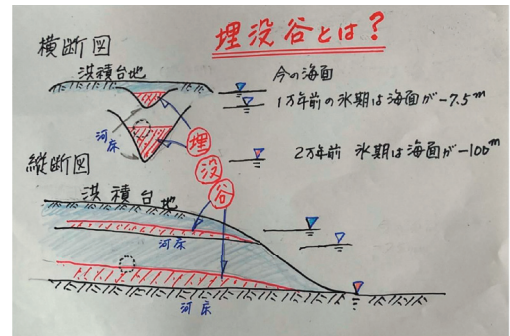 埋没谷とは?
横断図
洪積台地
今の海面
1万年前の氷期は海面が-7.5m
河床
埋
没
谷
2万年前 氷期は海面が-100m
縦断図
洪積台地
河床
河床